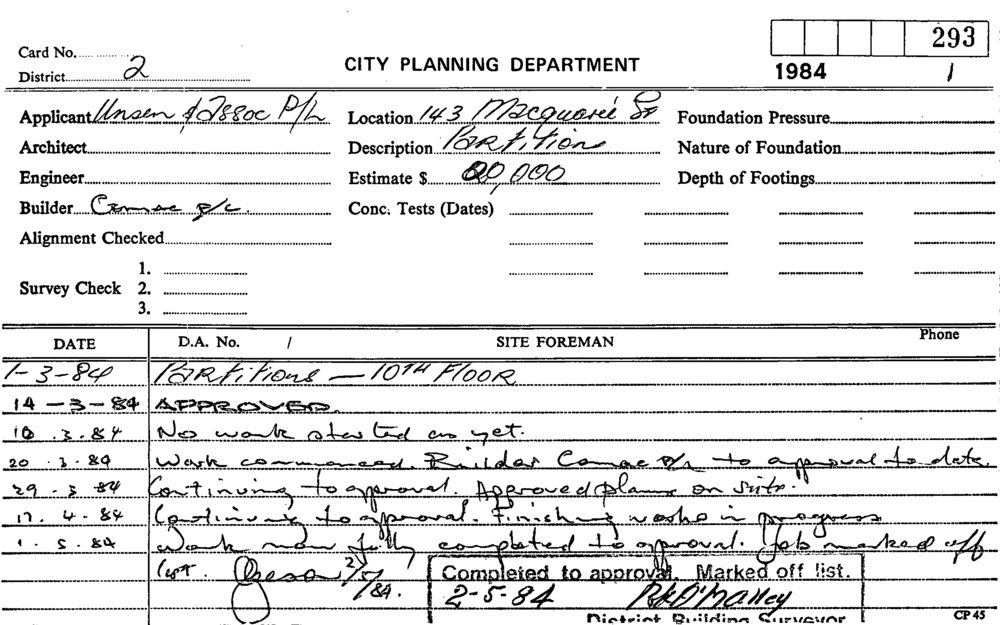 293
Card No.
District 2
CITY PLANNING DEPARTMENT
1984 1
Applicant & Assoc P/L Location 143 Macquarie St Foundation Pressure
Architect Description Partitions Nature of Foundation
Engineer Estimate $ 20,000 Depth of Footings
Builder Comac P/L. Conc. Tests (Dates)
Alignment Checked
Survey Check 1.
2.
3.
DATE D.A. No. / SITE FOREMAN Phone
1-3-84 PARTITIONS — 10TH FLOOR
14-3-84 APPROVED.
.3.84 No work started as yet.
20.3.84 Work commenced. Builder Comac P/L to approval to date.
29.3.84 Continuing to approval. Approved plans on site.
17.4.84 Continuing to approval. Finishing works in progress
1.5.84 Work now fully completed to approval. Job marked off
list. 2/5/84.
Completed to approval. Marked off list.
2-5-84 O'Malley
District Building Surveyor
CP 45